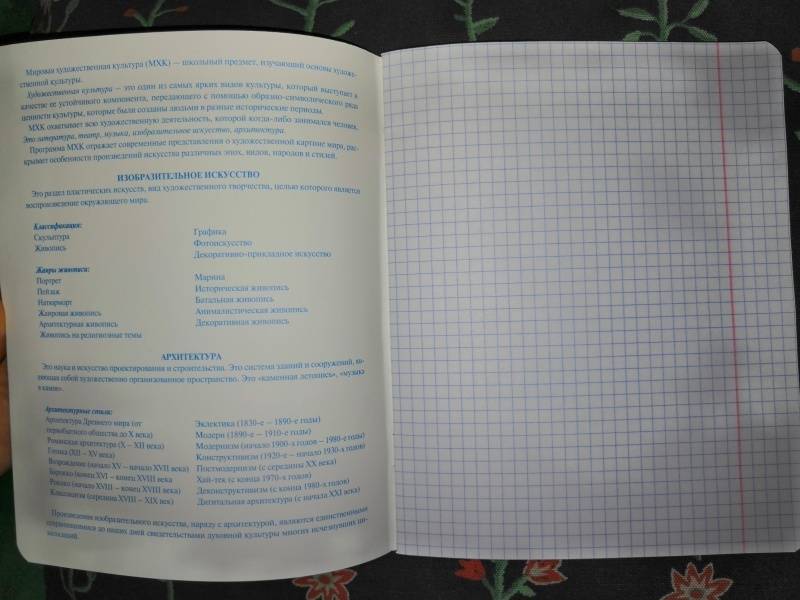 Мировая художественная культура (МХК) — школьный предмет, изучающий основы художе-
ственной культуры.
Художественная культура – это один из самых ярких видов культуры, который выступает в
качестве ее устойчивого компонента, передающего с помощью образно-символического ряда
ценности культуры, которые были созданы людьми в разные исторические периоды.
МХК охватывает всю художественную деятельность, которой когда-либо занимался человек.
Это литература, театр, музыка, изобразительное искусство, архитектура.
Программа МХК отражает современные представления о художественной картине мира, рас-
крывает особенности произведений искусства различных эпох, видов, народов и стилей.
ИЗОБРАЗИТЕЛЬНОЕ ИСКУССТВО
Это раздел пластических искусств, вид художественного творчества, целью которого является
воспроизведение окружающего мира.
Классификация:
Скульптура
Живопись
Графика
Фотоискусство
Декоративно-прикладное искусство
Жанры живописи:
Портрет
Пейзаж
Натюрморт
Жанровая живопись
Архитектурная живопись
Живопись на религиозные темы
Марина
Историческая живопись
Батальная живопись
Анималистическая живопись
Декоративная живопись
АРХИТЕКТУРА
Это наука и искусство проектирования и строительства. Это система зданий и сооружений,
собой художественно организованное пространство. Это «каменная летопись», «музыка
в камне».
Архитектурные стили:
Архитектура Древнего мира (от
первобытного общества до X века)
Романская архитектура (X – XII века)
Готика (XII – XV века)
Возрождение (начало XV – начало XVII века)
Барокко (конец XVI – конец XVIII века
Рококо (начало XVIII – конец XVIII века)
Классицизм (середина XVIII – XIX век)
Эклектика (1830-е – 1890-е годы)
Модерн (1890-е – 1910-е годы)
Модернизм (начало 1900-х годов – 1980-е годы)
Конструктивизм (1920-е – начало 1930-х годов)
Постмодернизм (с середины XX века)
Хай-тек (с конца 1970-х годов)
Деконструктивизм (с конца 1980-х годов)
Дигитальная архитектура (с начала XXI века)
Произведения изобразительного искусства, наряду с архитектурой, являются единственными
сохранившимися до наших дней свидетельствами духовной культуры многих исчезнувших ци-
вилизаций.